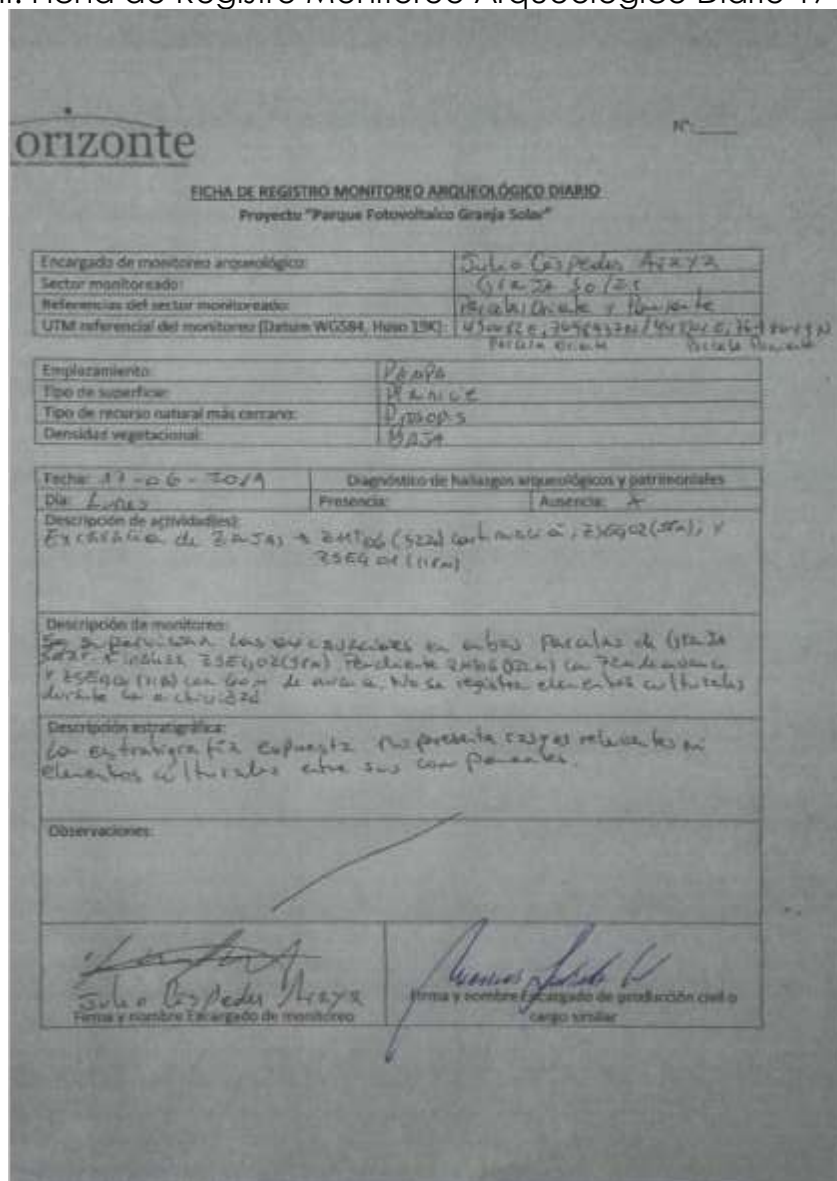 Ficha de Registro Monitoreo Arqueológico Diario 17
orizonte
N°:
FICHA DE REGISTRO MONITOREO ARQUEOLÓGICO DIARIO
Proyecto "Parque Fotovoltaico Granja Solar"
Encargado de monitoreo arqueológico: Julio Céspedes Araya
Sector monitoreado: Granja Solar
Referencias del sector monitoreado: Parcelas Oriente y Poniente
UTM referencial del monitoreo (Datum WGS84, Huso 19K):
Parcela Oriente Parcela Poniente
Emplazamiento: PAMPA
Tipo de superficie: Planicie
Tipo de recurso natural más cercano: Prosopis
Densidad vegetacional: BAJA
Fecha: 17-06-2019 Diagnóstico de hallazgos arqueológicos y patrimoniales
Día: Lunes Presencia: Ausencia: X
Descripción de actividad(es):
Excavación de Zanjas → ZMT06 (522m) continuación, ZSEG02 (58m), y
ZSEG01 (118m)
Descripción de monitoreo:
Se supervisan las excavaciones en ambas Parcelas de Granja
Solar. Finaliza ZSEG02 (58m) Pendiente ZMT06 (522m) con 72m de avance
y (118m) con 60m de avance. No se registra elementos culturales
durante la actividad
Descripción estratigráfica:
La estratigrafía expuesta no presenta rasgos relevantes ni
elementos culturales entre sus componentes.
Observaciones:
Julio Céspedes Araya
Firma y nombre Encargado de monitoreo
Firma y nombre Encargado de producción civil o
cargo similar